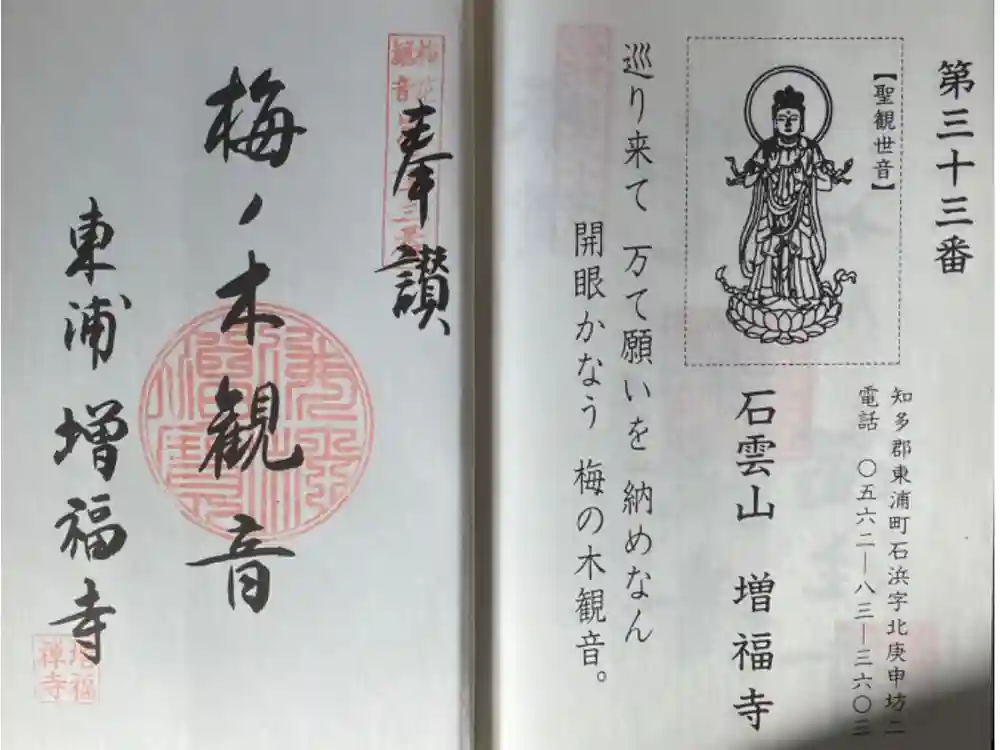 第三十三番
【聖観世音】
知多郡東浦町石浜字北庚申坊二
電話 〇五六二―八三―三六〇三
石雲山 増福寺
巡り来て 万て願いを 納めなん
開眼かなう 梅の木観音。
奉讃
梅ノ木観音
東浦 増福寺
増福
禅寺